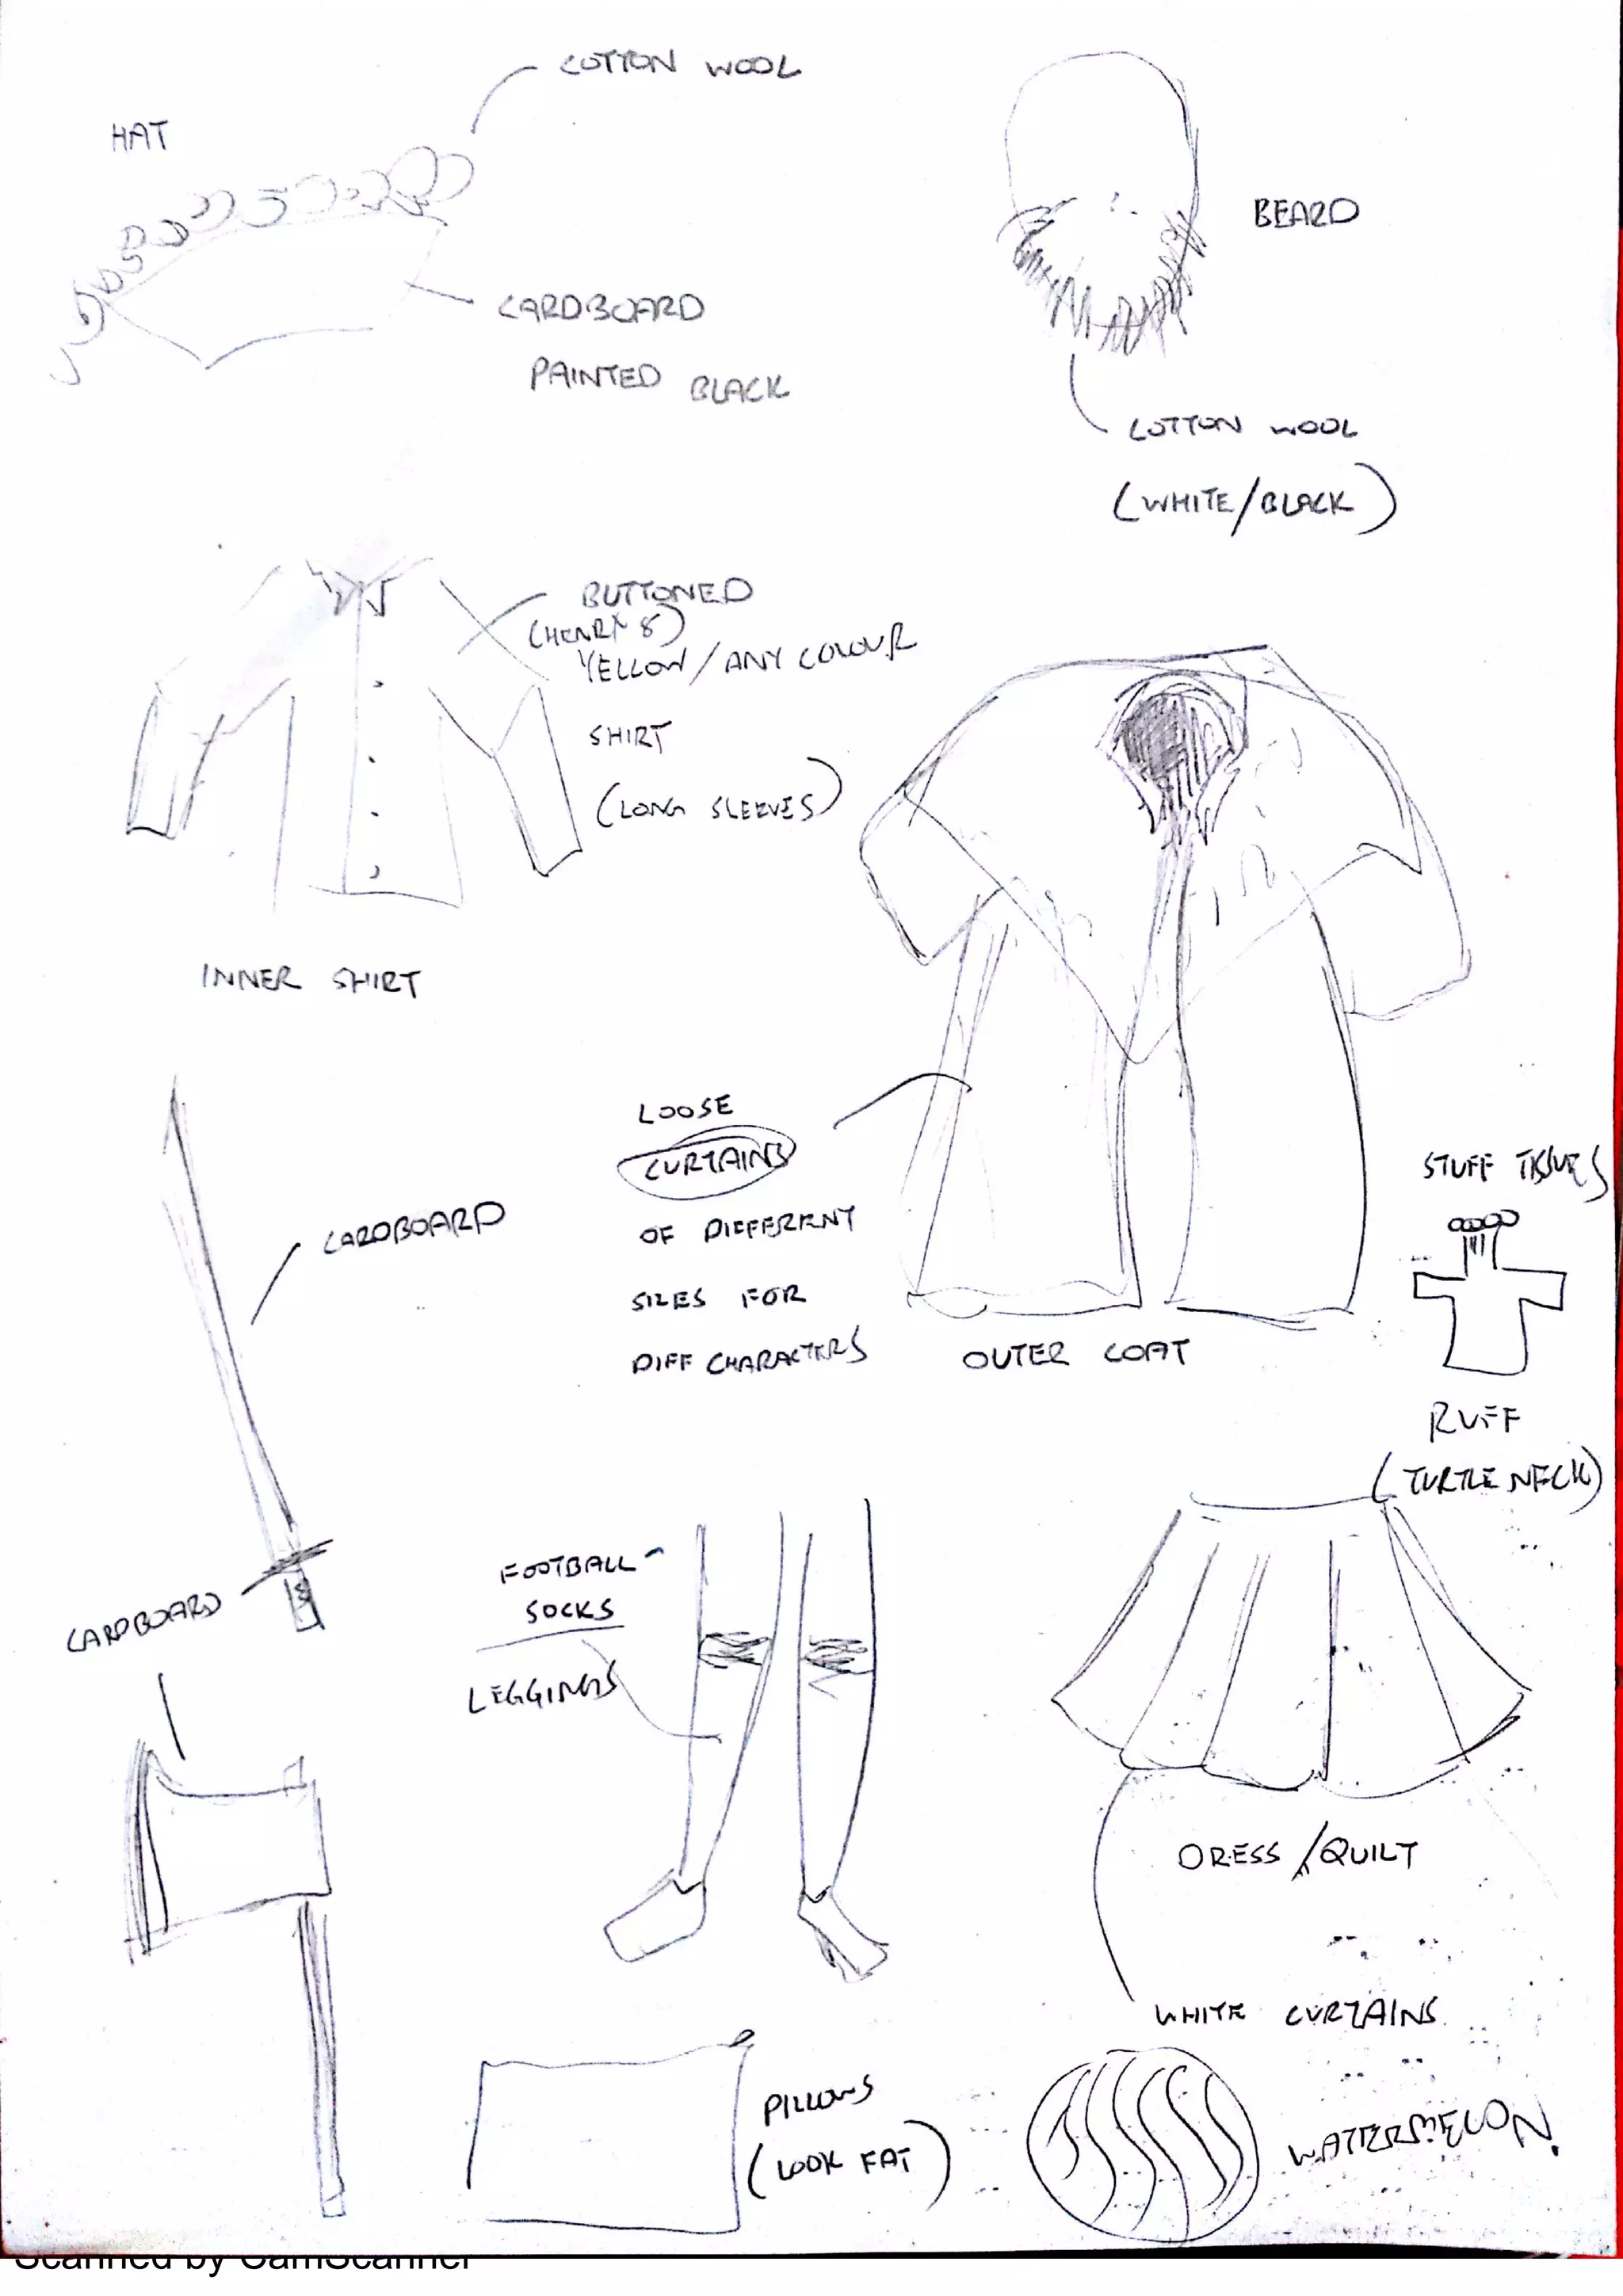 HAT
COTTON WOOL
CARDBOARD
PAINTED BLACK
BEARD
COTTON WOOL
(WHITE/BLACK)
BUTTONED
(HENRY 8)
YELLOW/ANY COLOUR
SHIRT
(LONG SLEEVES)
INNER SHIRT
LOOSE
CURTAINS
OF DIFFERENT
SIZES FOR
DIFF CHARACTERS
OUTER COAT
STUFF TISSUES
RUFF
(TURTLE NECK)
CARDBOARD
CARDBOARD
FOOTBALL
SOCKS
LEGGINGS
DRESS/QUILT
WHITE CURTAINS
PILLOWS
(LOOK FAT)
WATERMELON.
Scanned by CamScanner